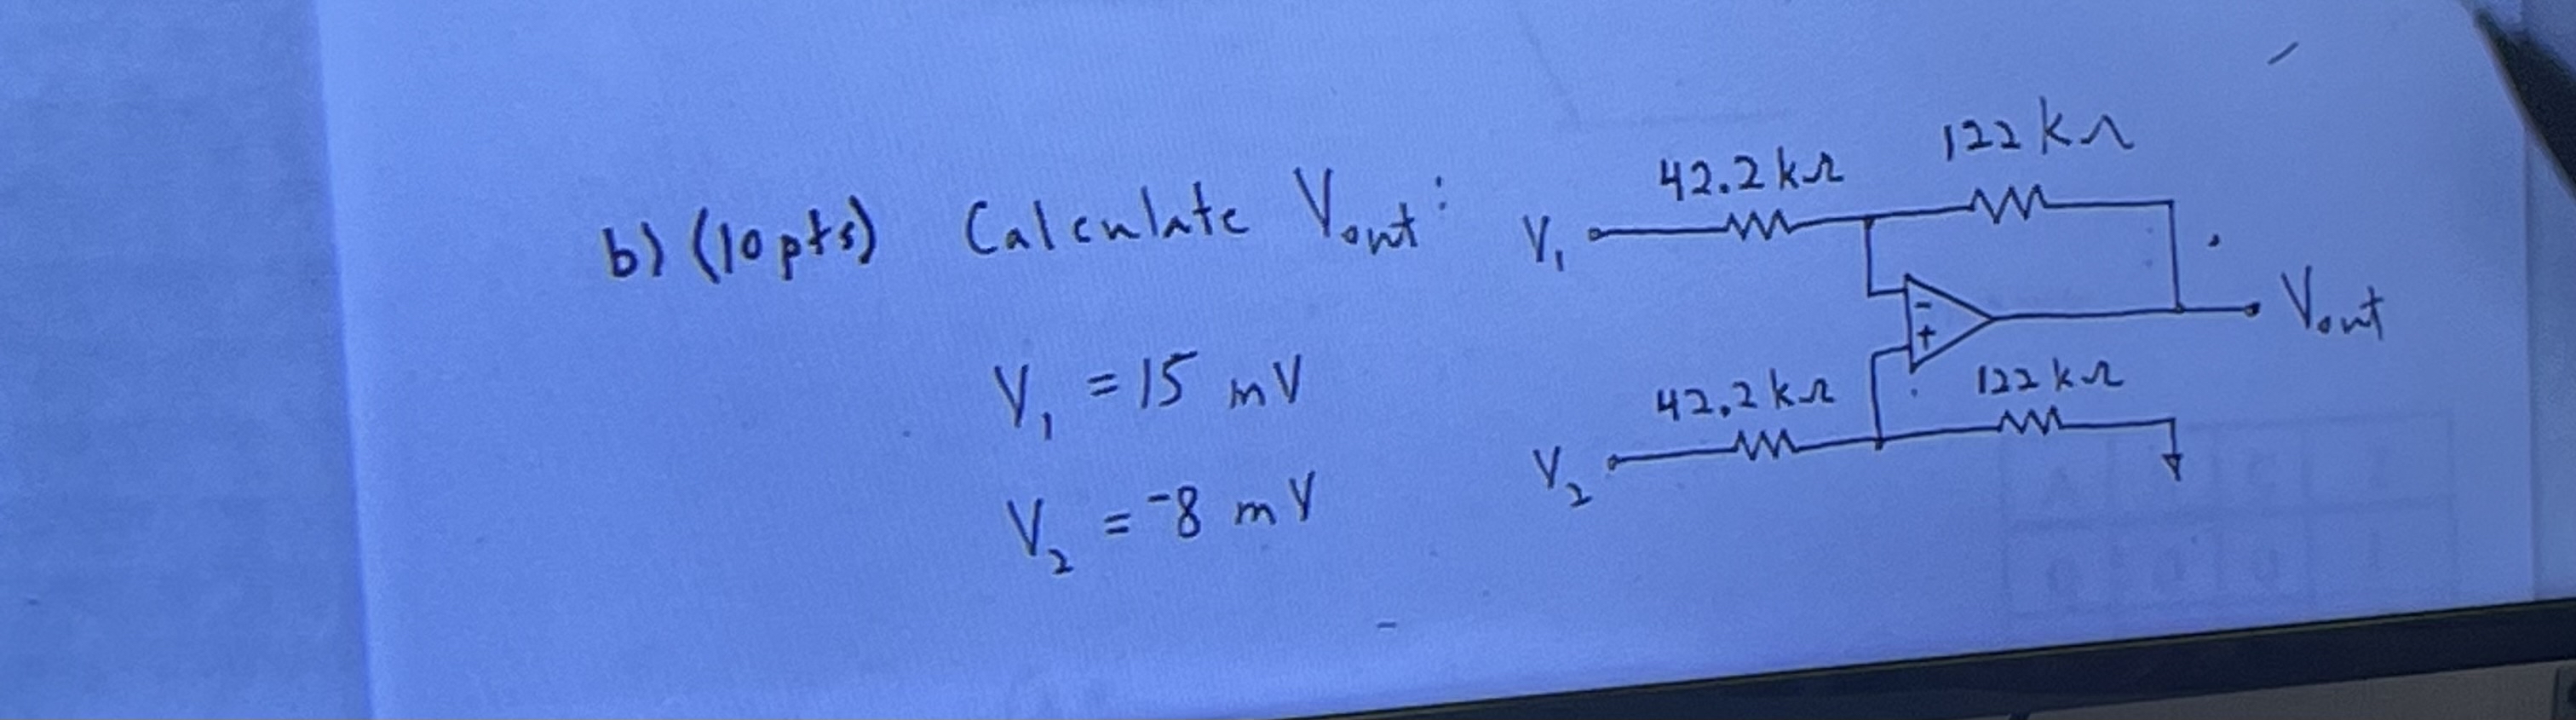 b) (10 pts) Calculate Vout:
V1 = 15 mV
V2 = -8 mV
42.2 kΩ
122 kΩ
V1
-
+
Vout
42.2 kΩ
122 kΩ
V2